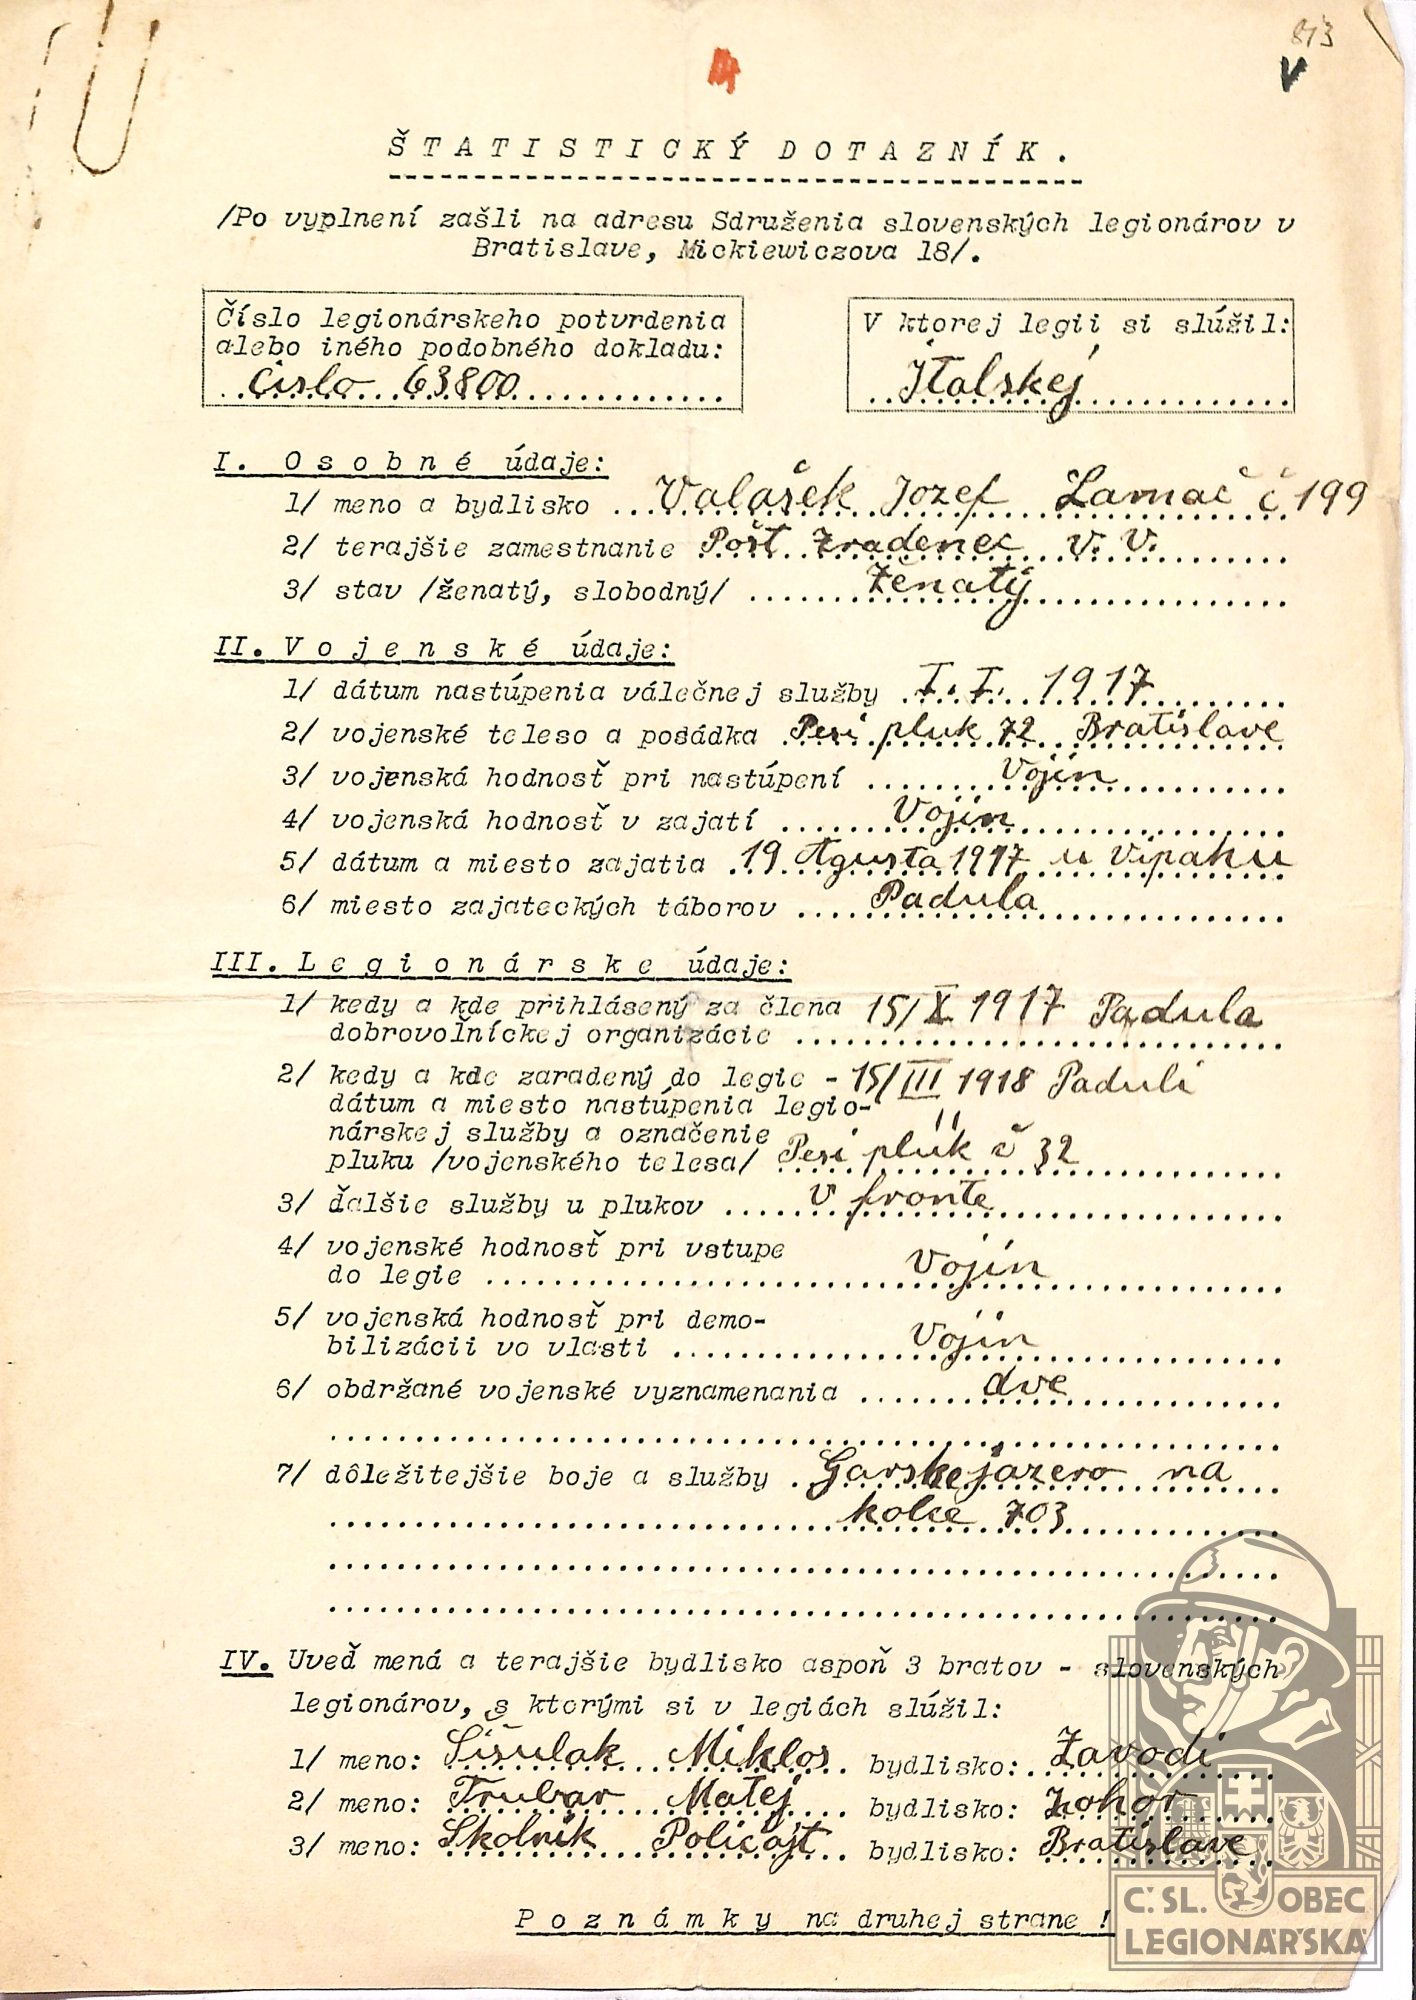 813
V
ŠTATISTICKÝ DOTAZNÍK.
/Po vyplnení zašli na adresu Sdruženia slovenských legionárov v
Bratislave, Mickiewiczova 18/.
Číslo legionárskeho potvrdenia
alebo iného podobného dokladu:
Cislo 63800
V ktorej legii si slúžil:
Jtalskej
I. Osobné údaje:
1/ meno a bydlisko Valašek Jozef Lamač č 199
2/ terajšie zamestnanie Pošt zradenec V. V.
3/ stav /ženatý, slobodný/ ženatý
II. Vojenské údaje:
1/ dátum nastúpenia válečnej služby I. I. 1917
2/ vojenské teleso a posádka Peši pluk 72 Bratislave
3/ vojenská hodnosť pri nastúpení Vojin
4/ vojenská hodnosť v zajatí Vojin
5/ dátum a miesto zajatia 19 Agusta 1917 u Vipahu
6/ miesto zajateckých táborov Padula
III. Legionárske údaje:
1/ kedy a kde přihlásený za člena 15/X 1917 Padula
dobrovoľníckej organizácie
2/ kedy a kde zaradený do legie - 15/III 1918 Paduli
dátum a miesto nastúpenia legio-
nárskej služby a označenie
pluku /vojenského telesa/ Peši pluk č 32
3/ ďalšie služby u plukov v fronte
4/ vojenské hodnosť pri vstupe
do legie Vojin
5/ vojenská hodnosť pri demo-
bilizácii vo vlasti Vojin
6/ obdržané vojenské vyznamenania dve
7/ dôležitejšie boje a služby Garske jazero na
kolce 703
IV. Uveď mená a terajšie bydlisko aspoň 3 bratov - slovenských
legionárov, s ktorými si v legiách slúžil:
1/ meno: Sišulak Miklos bydlisko: Zavodi
2/ meno: Trubar Matej bydlisko: Zohor
3/ meno: Skolnik Policajt bydlisko: Bratislave
Poznámky na druhej strane!
Č.SL. OBEC
LEGIONÁŘSKÁ